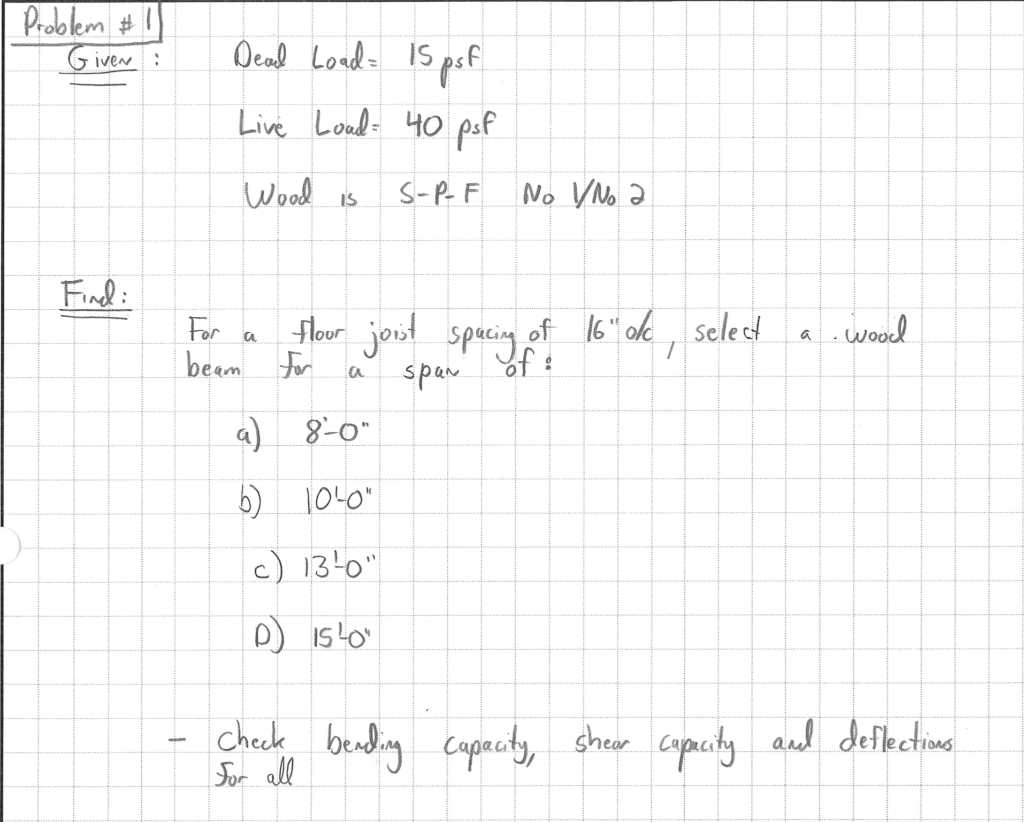 Problem # 1
Given :
Dead Load= 15 psf
Live Load= 40 psf
Wood is S-P-F No 1/No 2
Find:
For a floor joist spacing of 16" o/c, select a wood
beam for a span of:
a) 8'-0"
b) 10'-0"
c) 13'-0"
D) 15'-0"
- Check bending capacity, shear capacity and deflections
for all